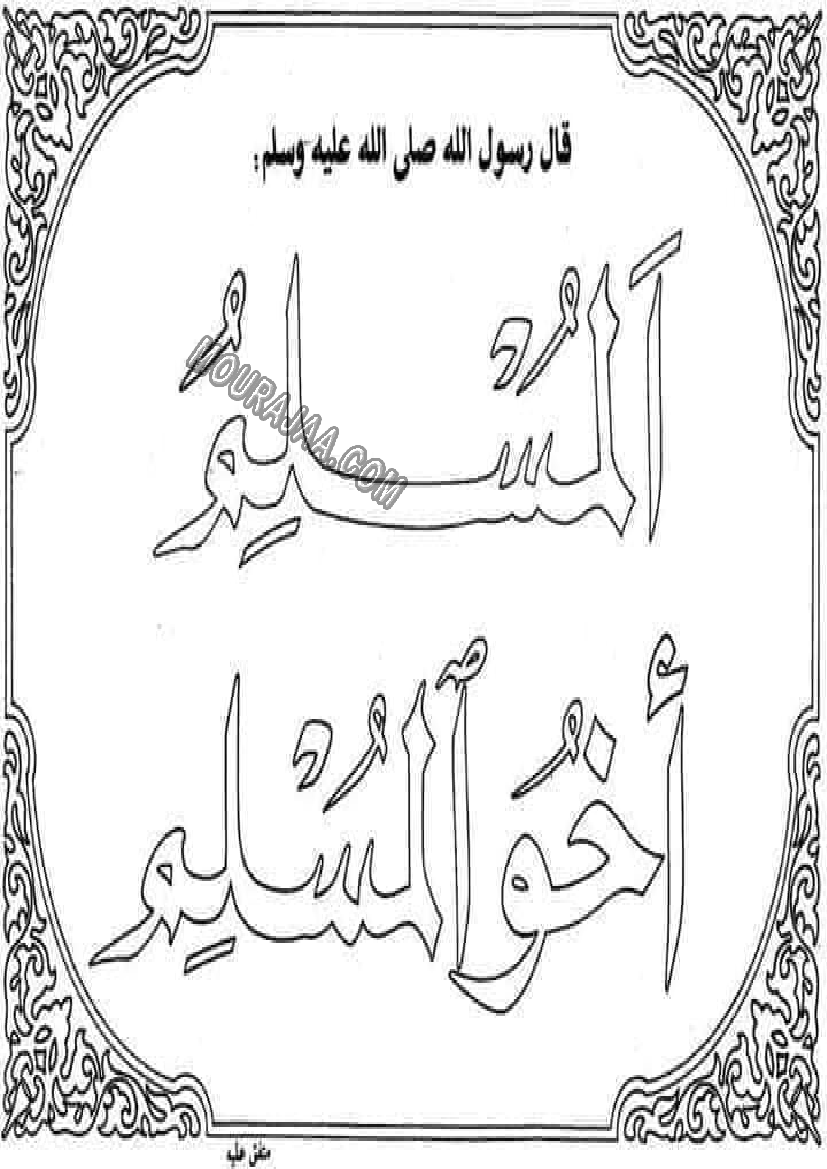 قال رسول الله صلى الله عليه وسلم :
اَلْمُسْلِمُ
أَخُو ٱلْمُسْلِمِ
MOURAJAA.COM
متفق عليه